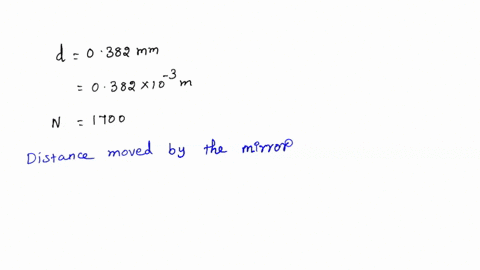 d = 0.382 mm
= 0.382 × 10⁻³ m
N = 1700
Distance moved by the mirror